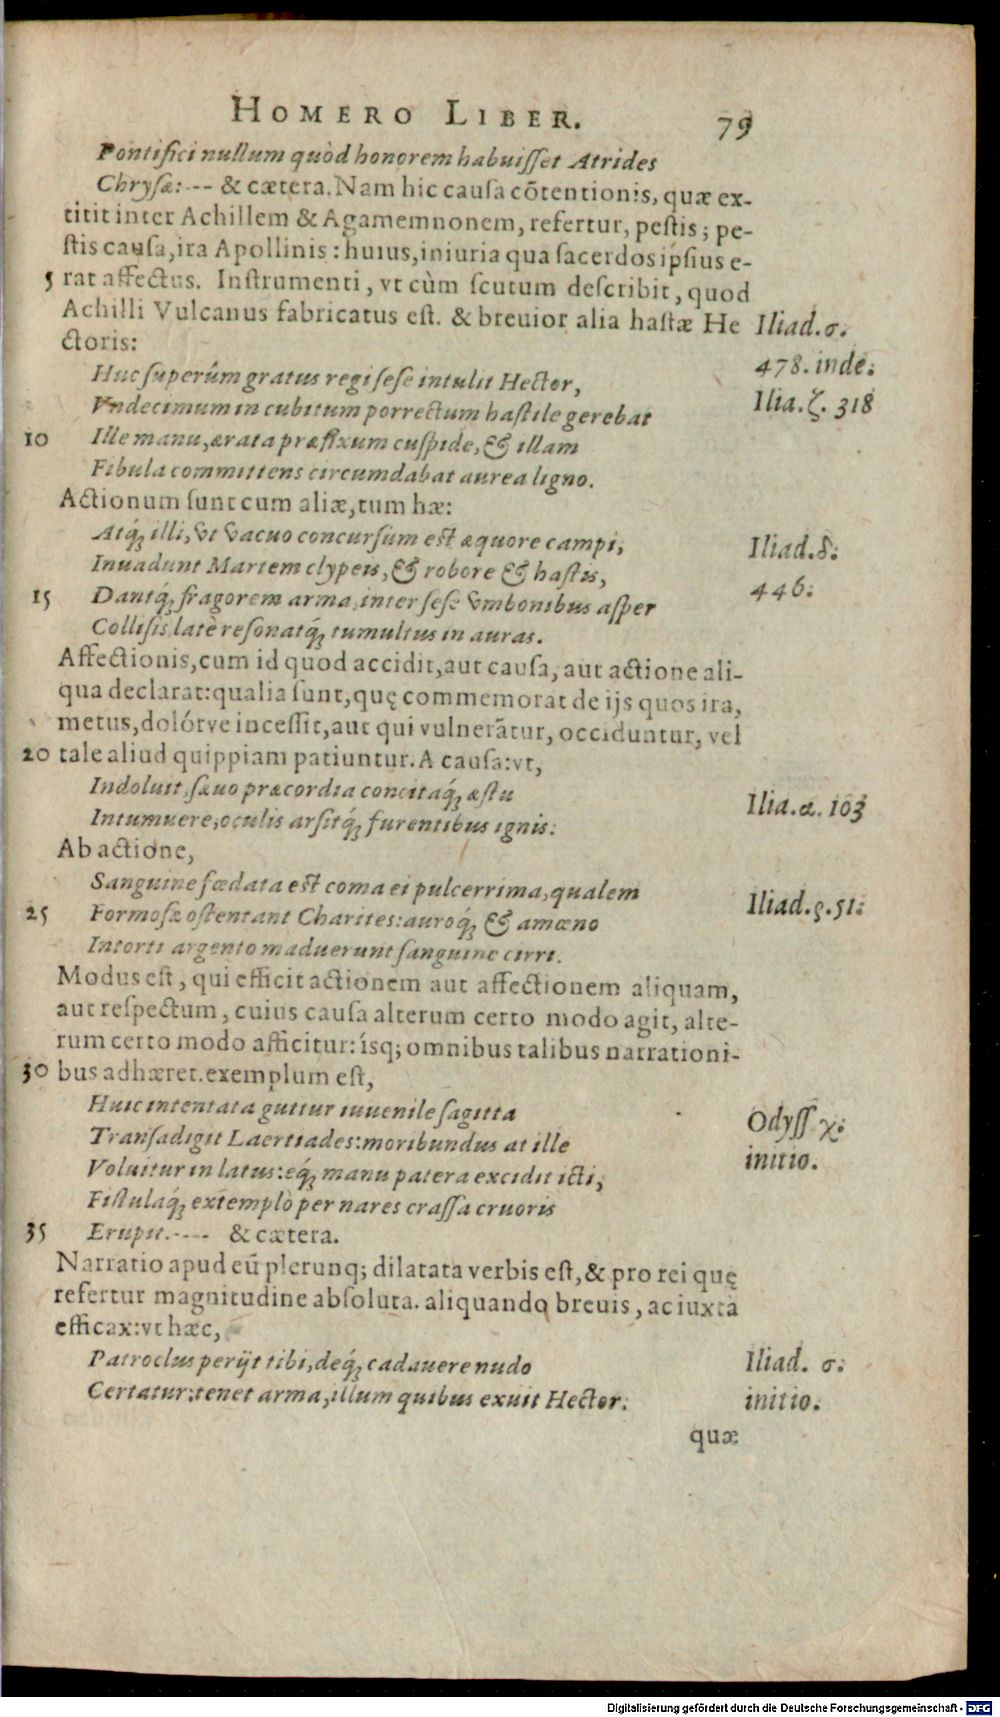 HOMERO LIBER. 79
Pontifici nullum quòd honorem habuisset Atrides
Chrysæ:--- & cætera. Nam hic causa cõtentionis, quæ ex-
titit inter Achillem & Agamemnonem, refertur, pestis; pe-
stis causa, ira Apollinis: huius, iniuria qua sacerdos ipsius e-
5 rat affectus. Instrumenti, vt cùm scutum describit, quod
Achilli Vulcanus fabricatus est. & breuior alia hastæ He Iliad. σ.
ctoris:
478. inde:
Huc superûm gratus regi sese intulit Hector,
Vndecimum in cubitum porrectum hastile gerebat Ilia. ζ. 318
10 Ille manu, ærata præfixum cuspide, & illam
Fibula committens circumdabat aurea ligno.
Actionum sunt cum aliæ, tum hæ:
Atq́; illi, vt vacuo concursum est æquore campi, Iliad. δ:
Inuadunt Martem clypeis, & robore & hastis, 446:
15 Dantq́; fragorem arma, inter sese vmbonibus asper
Collisis latè resonatq́; tumultus in auras.
Affectionis, cum id quod accidit, aut causa, aut actione ali-
qua declarat: qualia sunt, quę commemorat de ijs quos ira,
metus, dolórve incessit, aut qui vulnerãtur, occiduntur, vel
20 tale aliud quippiam patiuntur. A causa: vt,
Indoluit, sæuo præcordia concitaq́; æstu Ilia. α. 103
Intumuere, oculis arsitq́; furentibus ignis:
Ab actione,
Sanguine fœdata est coma ei pulcerrima, qualem Iliad. ρ. 51:
25 Formosæ ostentant Charites: auroq́; & amœno
Intorti argento maduerunt sanguine cirri.
Modus est, qui efficit actionem aut affectionem aliquam,
aut respectum, cuius causa alterum certo modo agit, alte-
rum certo modo afficitur: ísq; omnibus talibus narrationi-
30 bus adhæret. exemplum est,
Huic intentata guttur iuuenile sagitta Odyss χ:
Transadigit Laertiades: moribundus at ille initio.
Voluitur in latus: eq́; manu patera excidit icti,
Fistulaq́; extemplò per nares crassa cruoris
35 Erupit.---- & cætera.
Narratio apud eũ plerunq; dilatata verbis est, & pro rei quę
refertur magnitudine absoluta. aliquando breuis, ac iuxta
efficax: vt hæc,
Patroclus perijt tibi, deq́; cadauere nudo Iliad. σ:
Certatur: tenet arma, illum quibus exuit Hector: initio.
quæ
Digitalisierung gefördert durch die Deutsche Forschungsgemeinschaft - DFG